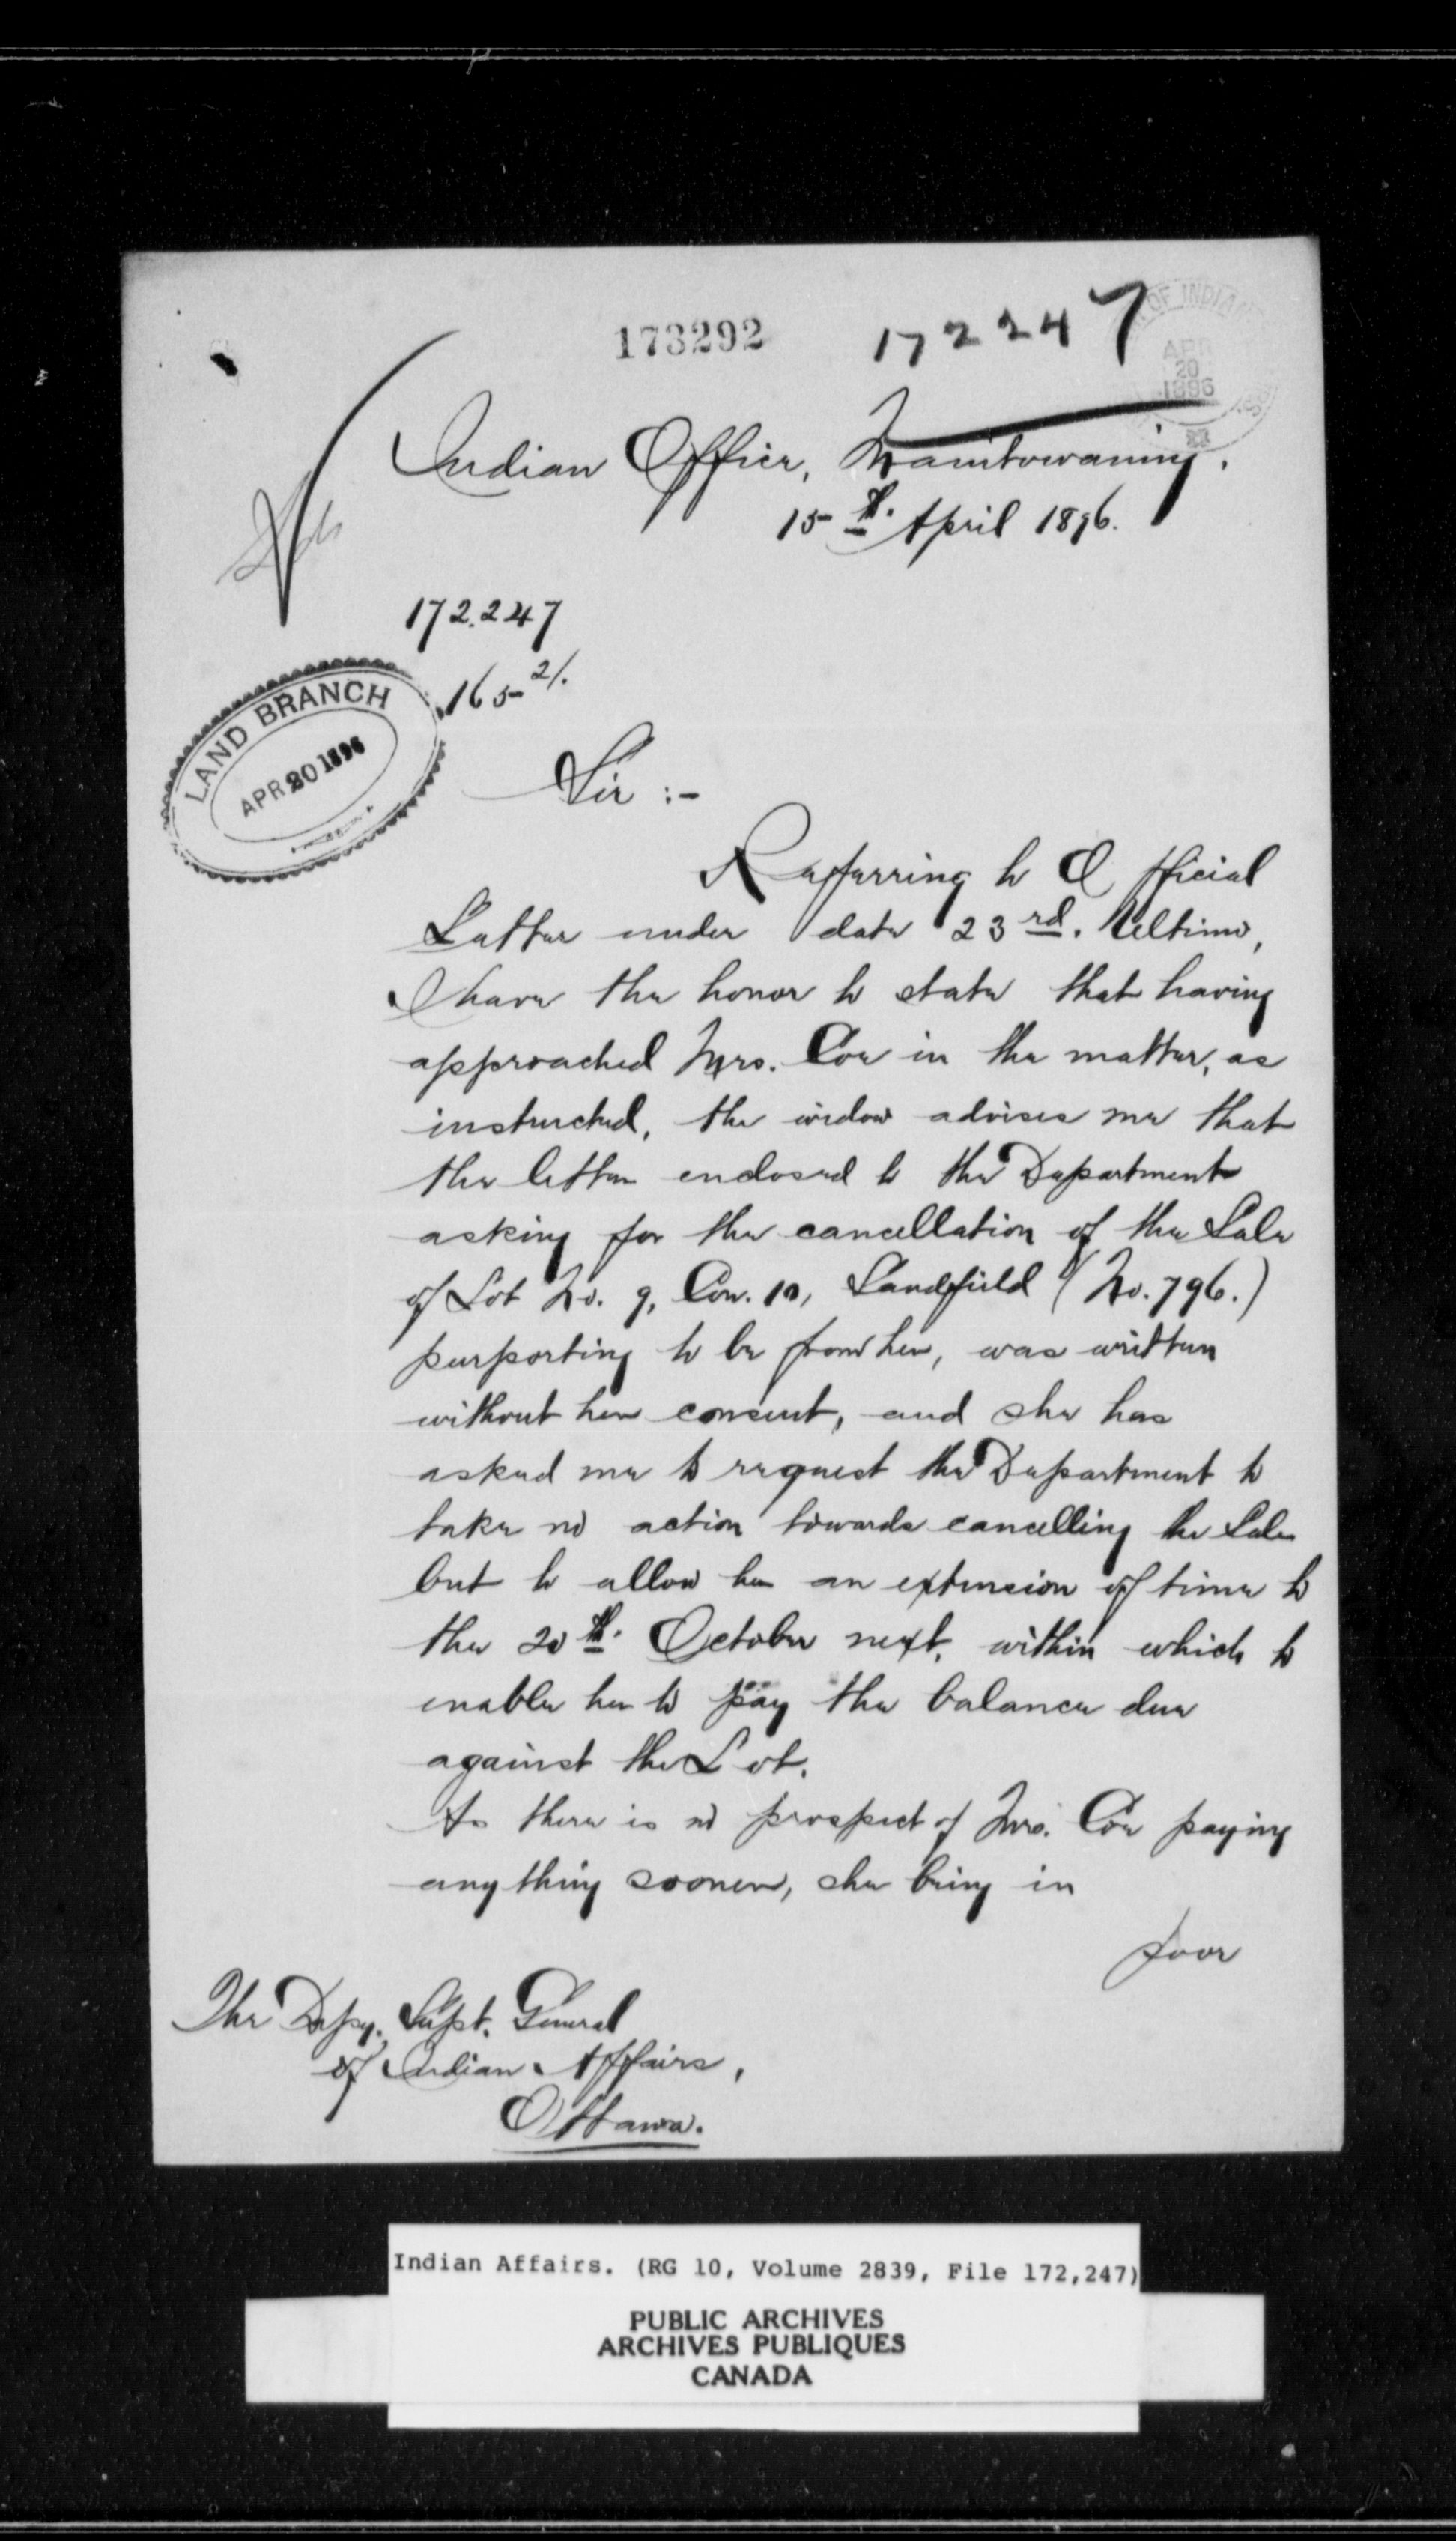 173292
172247
OF INDIAN
APR
20
1896
Indian Office, Manitowaning.
15th. April 1896.
172.247
165 2/.
LAND BRANCH
APR 20 1896
Sir :-
Referring to Official
Letter under date 23rd. Ultimo,
I have the honor to state that having
approached Mrs. Coe in the matter, as
instructed, the widow advises me that
the letter enclosed to the Department
asking for the cancellation of the Sale
of Lot No. 9, Con. 10, Sandfield (No. 796.)
purporting to be from her, was written
without her consent, and she has
asked me to request the Department to
take no action towards cancelling the Sale
but to allow her an extension of time to
the 20th. October next, within which to
enable her to pay the balance due
against the Lot.
As there is no prospect of Mrs. Coe paying
anything sooner, she being in
poor
The Depy. Supt. General
of Indian Affairs,
Ottawa.
Indian Affairs. (RG 10, Volume 2839, File 172,247)
PUBLIC ARCHIVES
ARCHIVES PUBLIQUES
CANADA